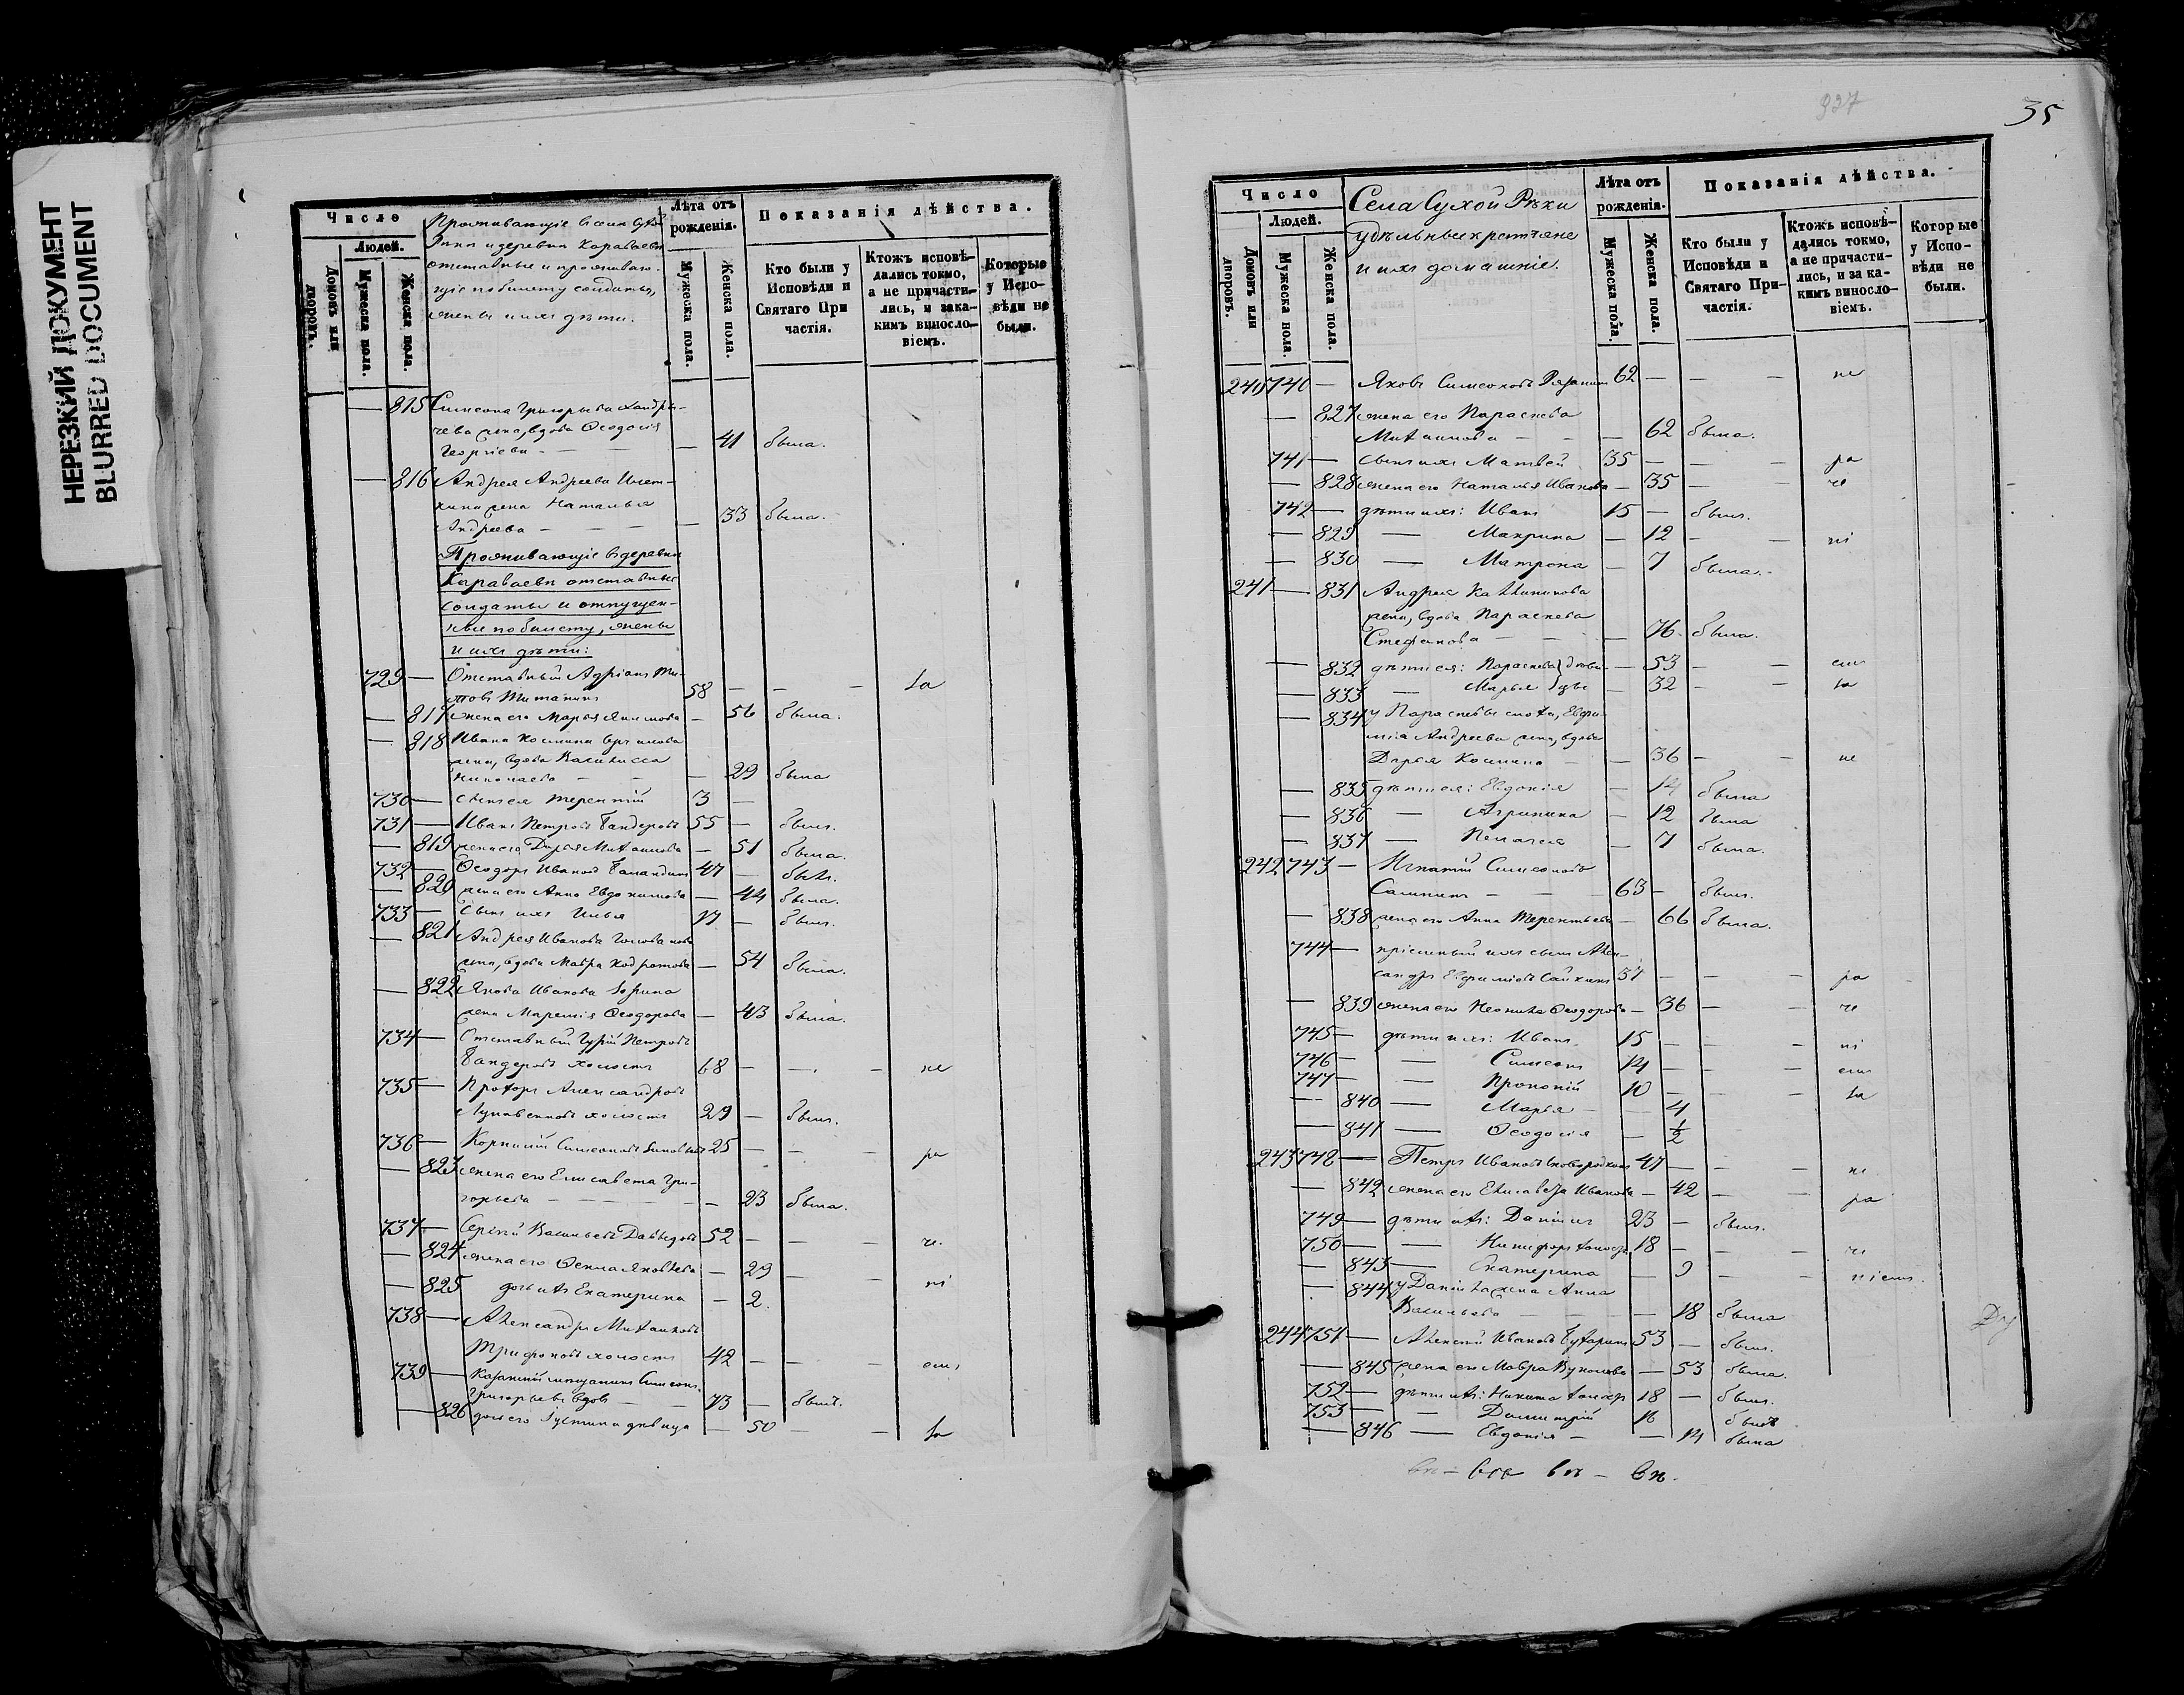 НЕРЕЗКИЙ ДОКУМЕНТ
BLURRED DOCUMENT
Число
Людей.
Домовъ или дворовъ.
Мужеска пола.
Женска пола.
Проживающіе в селе Сухой
Рѣки и деревни Караваевы
отставные и прожива-
щіе по билету солдаты,
жены и ихъ дѣти.
Лѣта отъ рожденія.
Мужеска пола.
Женска пола.
Показанія дѣйства.
Кто были у Исповѣди и Святаго При частія.
Ктожъ исповѣ-дались токмо, а не причасти-лись, и зака-кимъ виносло-віемъ.
Которые у Испо-вѣди не были.
— 815 Симеона Григорьева
жена, вдова Ѳеодосія
Георгіева — — — 41 была.
— 816 Андрея Андреева
жена Наталья
Андреева — — — 33 была.
Проживающіе в деревни
Караваевы отставные
солдаты и отпущен-
ные по билету, жены
и ихъ дѣти:
729 — Отставный Адріанъ
58 — — — ла
— 817 жена его Марья Якимова — 56 была.
— 818 Ивана Космина
жена, вдова Василисса
Николаева — — — 29 была
730 — сынъ ея Терентій 3 —
731 — Иванъ Петровъ Бандеровъ 55 — былъ.
— 819 жена его Дарья Михаилова — 51 была.
732 — Ѳеодоръ Ивановъ Баландинъ 47 — былъ.
— 820 жена его Анна Евдокимова — 44 была.
733 — Сынъ ихъ Илья 17 — былъ.
— 821 Андрея Иванова
жена, вдова Мавра — 54 была.
— 822 Якова Иванова
жена Ѳеодорова — 43 была.
734 — Отставный Гурій Петровъ
Бандеровъ холостъ 68 — — — не
735 — Прохоръ Александровъ
холостъ 29 — былъ.
736 — Корнилій Симеоновъ 25 — — — ра
— 823 жена его Елисавета Гри-
горьева — — — 23 была.
737 — Сергѣй Васильевъ Давыдовъ 52 — — — че.
— 824 жена его Яковлева — 29 — — ні
— 825 дочь ихъ Екатерина — 2.
738 — Александръ Михаиловъ
Трифоновъ холостъ 42 — — — емъ
739 — Казанскій мѣщанинъ Симеонъ
Григорьевъ вдовъ — — 73 — былъ.
— 826 дочь его Іустина дѣвица — 50 — — ла
927
35
Число
Людей.
Домовъ или дворовъ.
Мужеска пола.
Женска пола.
Села Сухой Рѣки
удѣльные крестьяне
и ихъ домашніе.
Лѣта отъ рожденія.
Мужеска пола.
Женска пола.
Показанія дѣйства.
Кто были у Исповѣди и Святаго При-частія.
Ктожъ исповѣ-дались токмо, а не причасти-лись, и за ка-кимъ виносло-віемъ.
Которые у Испо-вѣди не были.
240 740 — Яковъ Симеоновъ 62 — — — не
— 827 жена его Параскева
Михаилова — — — 62 была.
741 — сынъ ихъ Матвей 35 — — — ра
— 828 жена его Наталья Иванова — 35 — че
742 — дѣти ихъ: Иванъ 15 — былъ.
— 829 — Макрина — 12 — — ні
— 830 — Матрона — 7 была.
241 — 831 Андрея Калинникова
жена, вдова Параскева
Стефанова — — — 76 была.
— 832 дѣти ея: Параскева } дѣви- — 53 — — емъ
— 833 — Марья } цы — 32 — — ла
— 834 у Параскевы сноха, Евфи-
мія Андреева жена, вдова
Дарья Космина — — 36 — — не
— 835 дѣти ея: Евдокія — 14 была
— 836 — Агрипина — 12 была
— 837 — Пелагея — 7 была.
242 743 — Игнатій Симеоновъ
— — 63 — былъ.
— 838 жена его Анна Терентьева — 66 была.
744 — пріемный ихъ сынъ Алек-
сандръ Евфиміевъ 37 — — — ра
— 839 жена его Ѳеодорова — 36 — че
745 — дѣти ихъ: Иванъ 15 — — — ні
746 — — Симеонъ 14 — — — емъ
747 — — Прокопій 10 — — — ла
— 840 — Марья — — 4
— 841 — Ѳеодосія — 1/2
243 748 — Петръ Ивановъ 47 — — — не
— 842 жена его Елисавета Иванова — 42 — — ра
749 — дѣти ихъ: Даніилъ 23 — былъ.
750 — — Никифоръ холостъ 18 — — — че
— 843 — Екатерина — 9 — — ніемъ.
— 844 у Даніила жена Анна
Васильева — — 18 была
244 751 — Алексѣй Ивановъ 53 — былъ.
— 845 жена его Мавра — 53 была.
752 — дѣти ихъ: Никита холостъ 18 — былъ.
753 — — Димитрій 16 былъ
— 846 — Евдокія — — 14 была